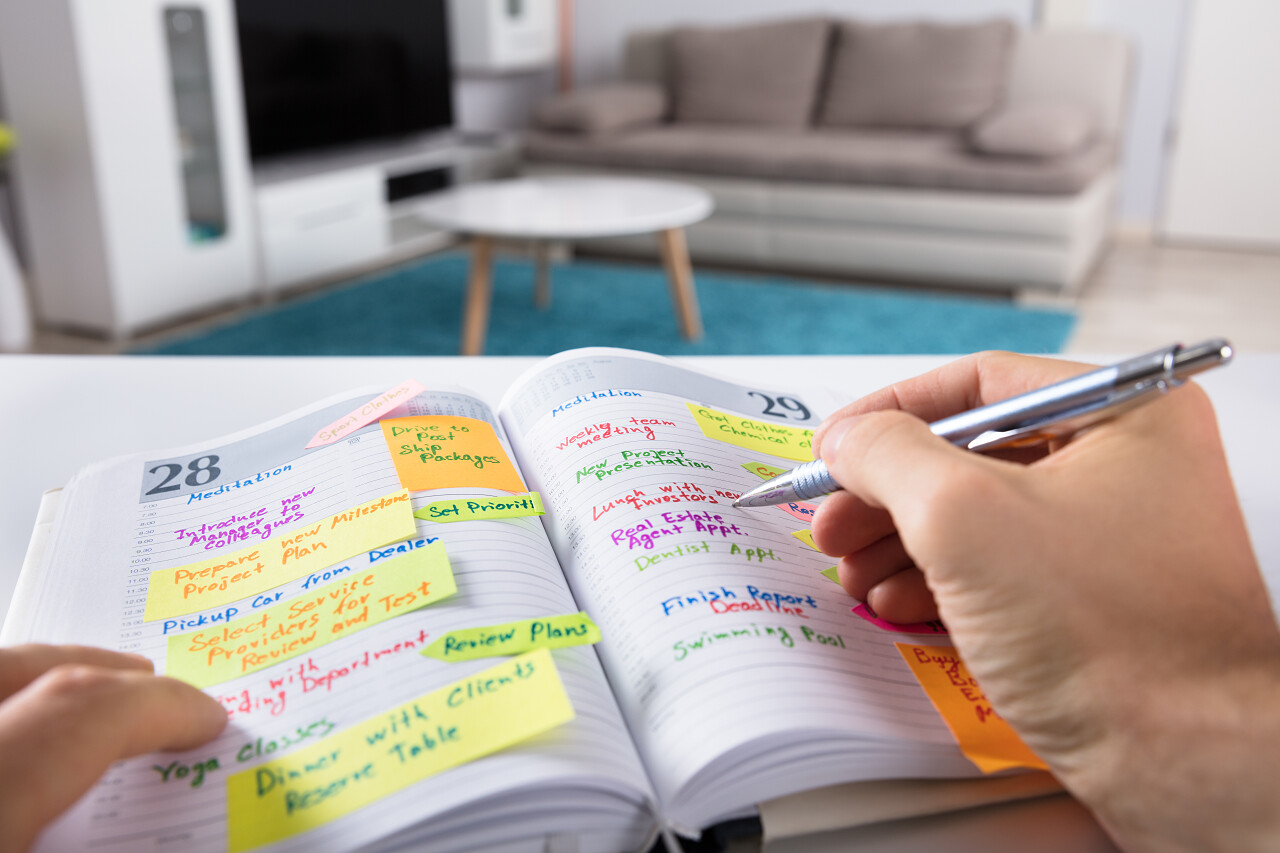 28
Meditation
Sport Clothes
Drive to
Post
Ship
Packages
Introduce new
Manager to
colleagues
Set Prioriti
Prepare new Milestone
Project Plan
Pickup Car from Dealer
Select Service
Providers for
Review and Test
Review Plans
with
Department
Yoga Classes
Dinner with Clients
Reserve Table
7.00
7.30
10.00
10.30
11.00
11.30
12.00
29
Meditation
Weekly team
meeting
New Project
Presentation
Lunch with new
Investors
Real Estate
Agent Appt.
Dentist Appt.
Finish Report
Deadline
Swimming Pool
Got Clothes
Chemical
Buy